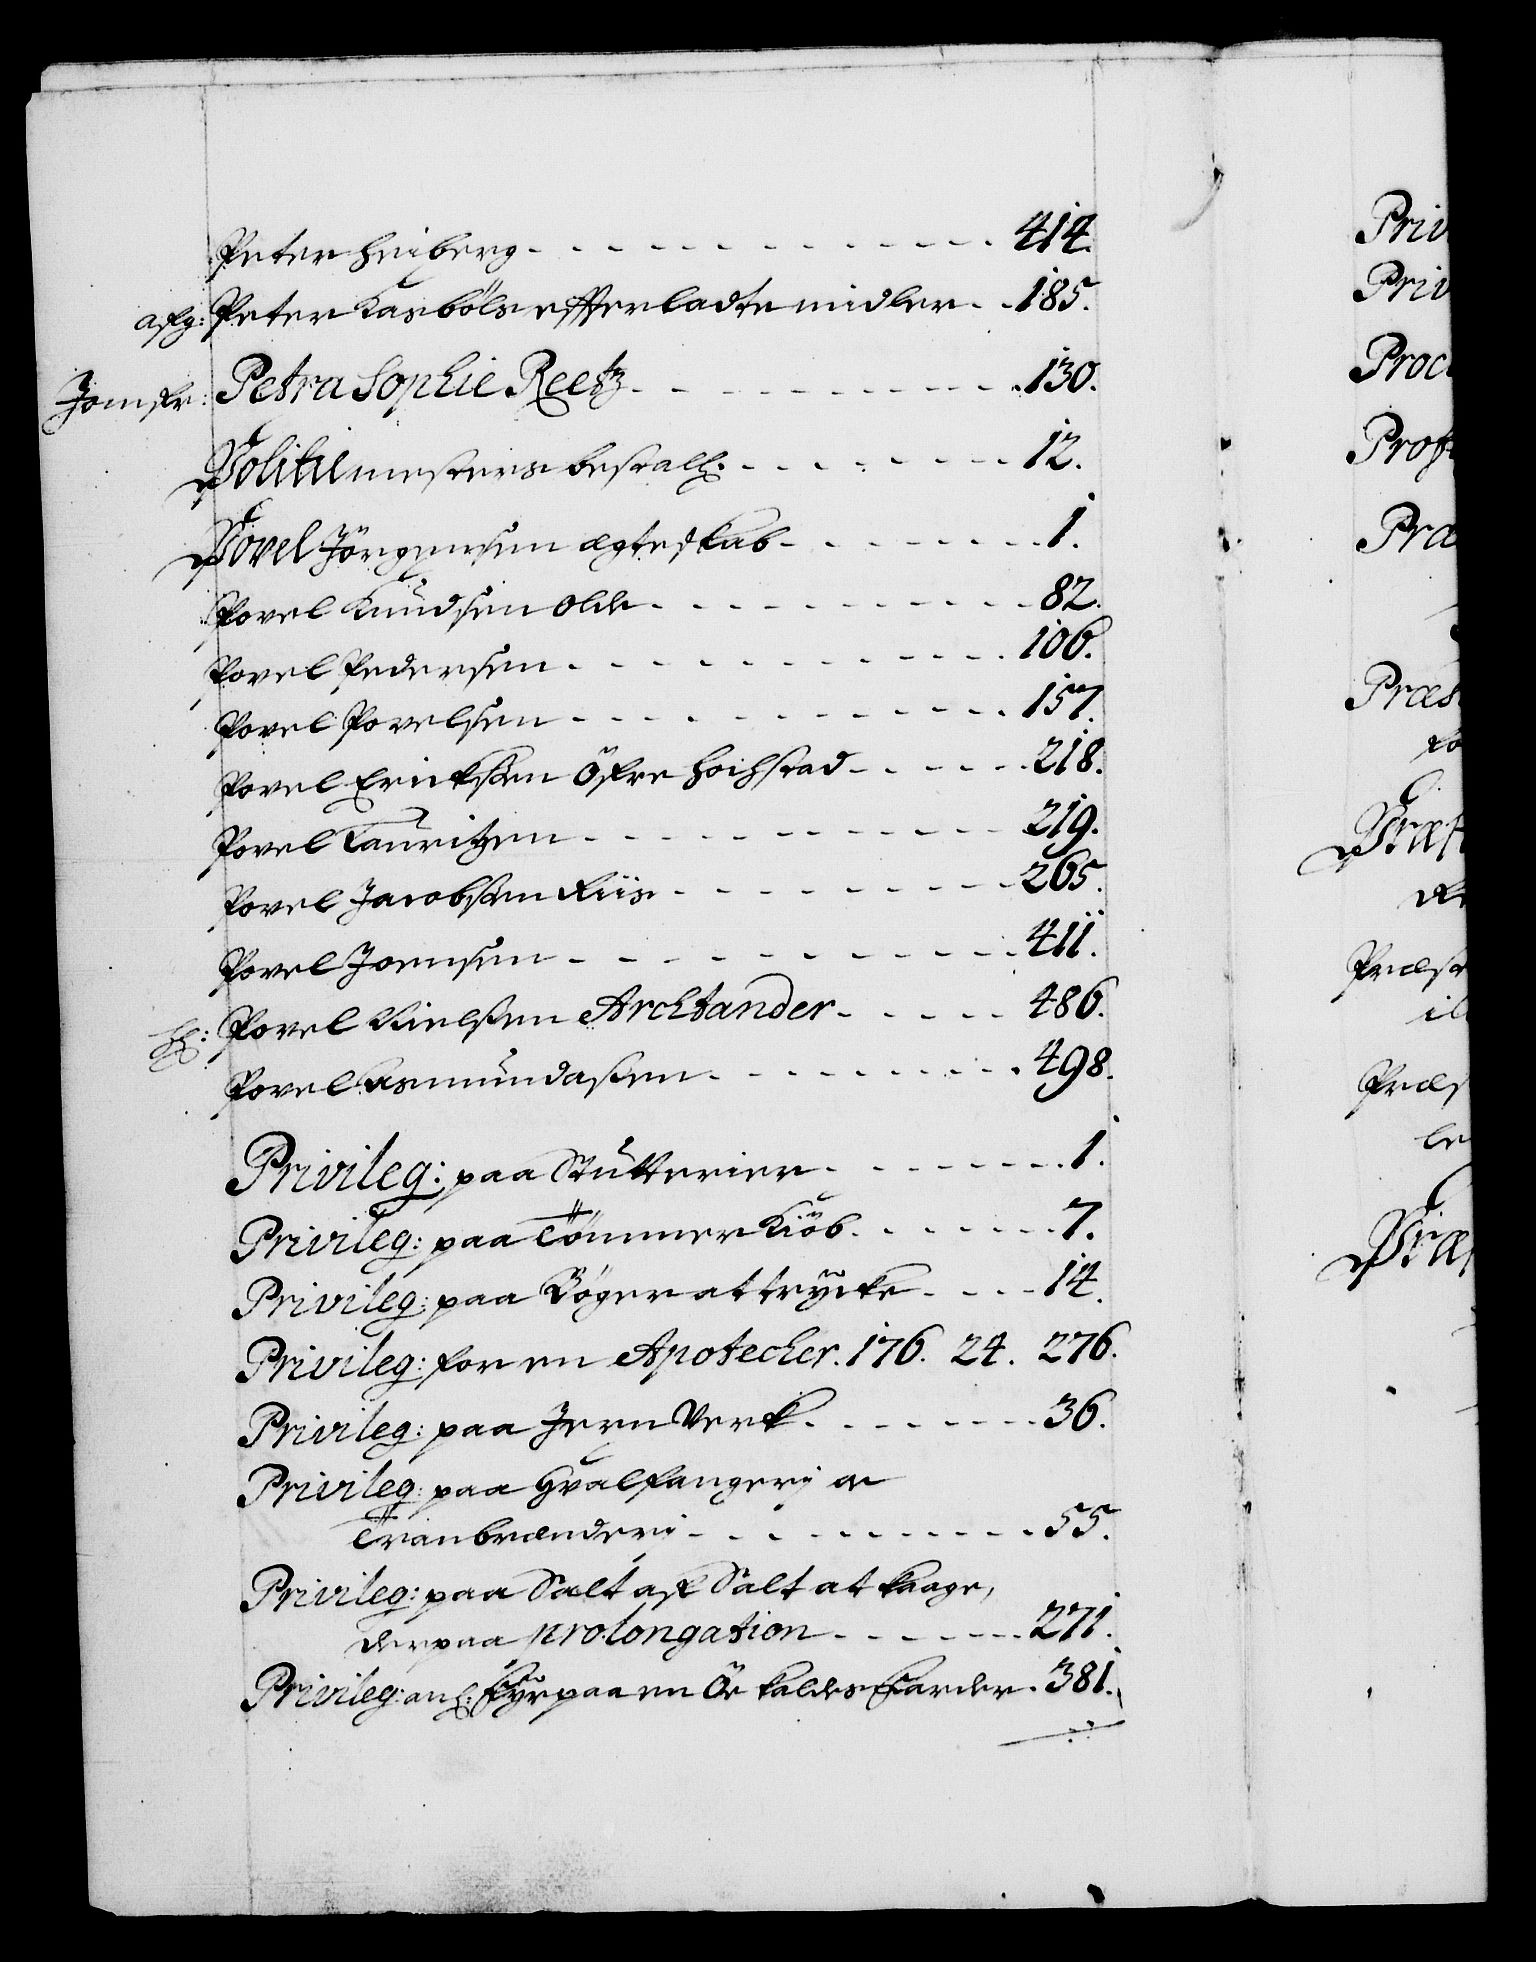 Peter Heiberg - - - - - - - - - - - - 414.
afg: Peter Kasböls efterladte midler - - 185.
Jomfr: Petra Sophie Reetz - - - - - - - - - 130.
Politiimesters bestall: - - - - - - - - 12.
Povel Jörgensen ægteskab - - - - - - - - 1.
Povel Knudsen Olde - - - - - - - - - - 82.
Povel Pedersen - - - - - - - - - - - 106.
Povel Povelsen - - - - - - - - - - - 157.
Povel Ericksen Öfre Hochstad - - - - - 218.
Povel Lauritzen - - - - - - - - - - 219.
Povel Jacobsen Riis - - - - - - - - - 265.
Povel Joensen - - - - - - - - - - - 411.
H: Povel Nielsen Archtander - - - - - 486.
Povel Asmundasen - - - - - - - - - 498.
Privileg: paa Stutterier - - - - - - - 1.
Privileg: paa Tömmer Kiöb - - - - - - 7.
Privileg: paa Böger at trycke - - - - 14.
Privileg: for en Apotecker. 176. 24. 276.
Privileg: paa Jern Verk - - - - - - - - 36.
Privileg: paa Hvalfangeri oc
Tranbrænderi - - - - - - - - - - 55.
Privileg: paa Salt af Salt at kaage,
derpaa prolongation - - - - - - 271.
Privileg: anl: Fyr paa en Öe kaldes Færder. 381.
Priv
Priv
Proc
Prof
Præ
Præs
fo
Præst
Præst
il
Præs
le
Præ